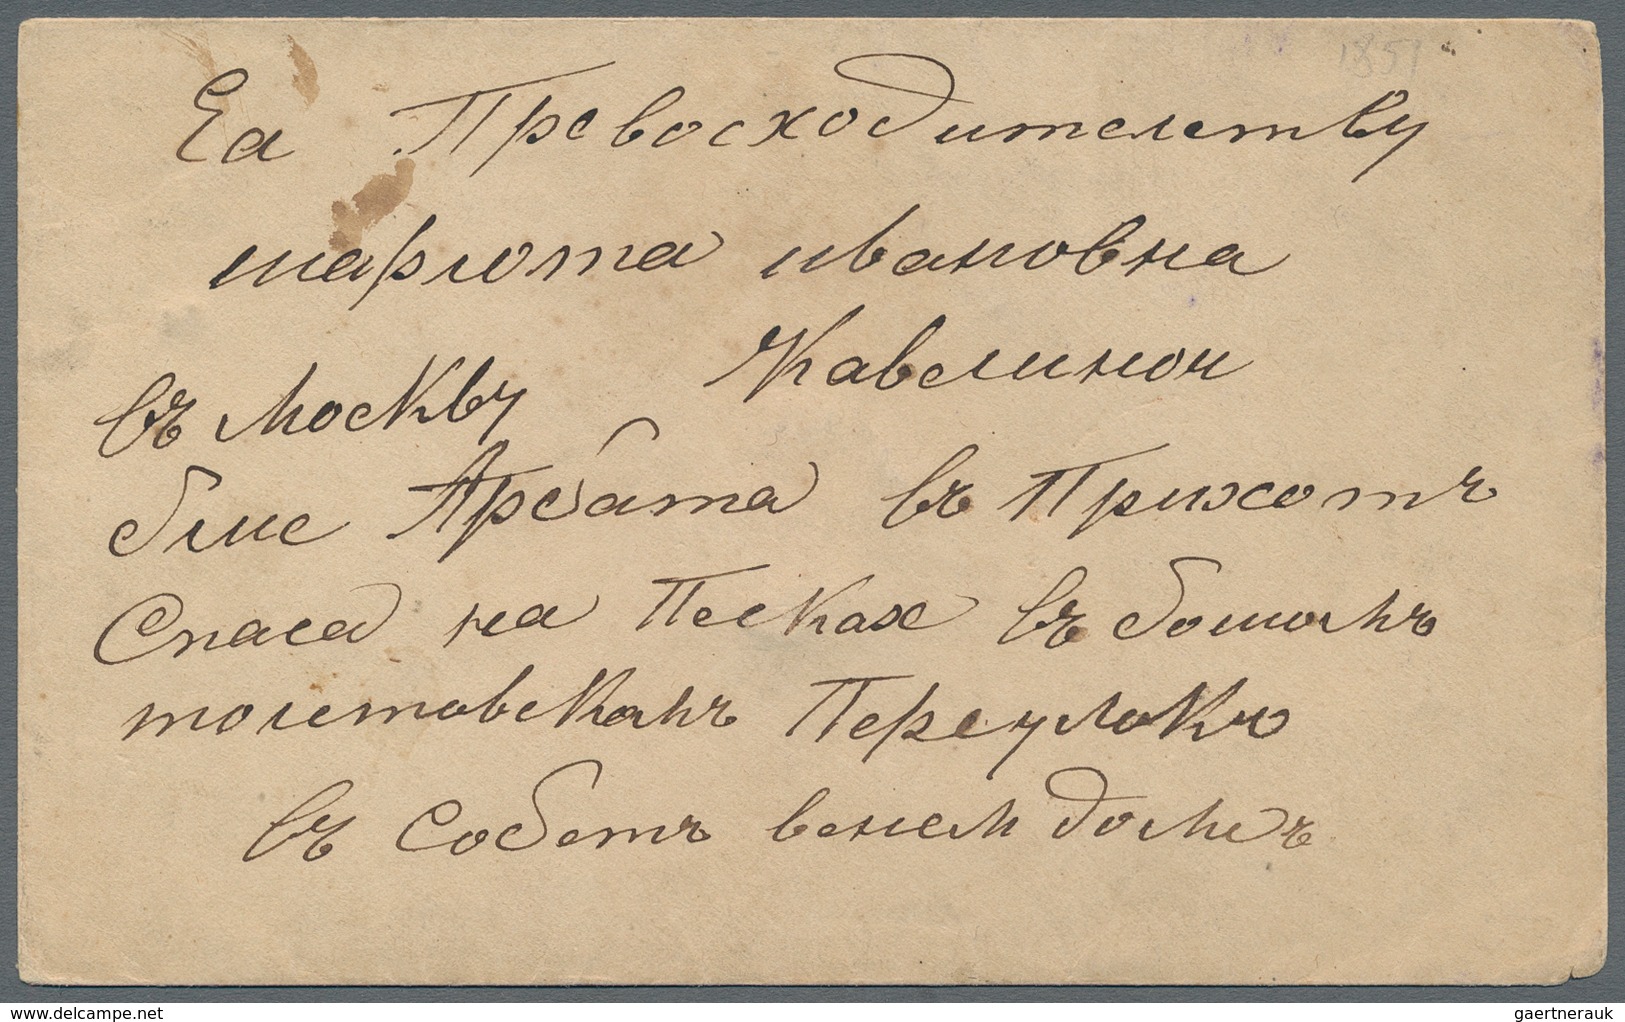 1851
Еа Превосходителству
шарлота ивановна
Кавелиной
въ Москву
блис Арбата въ Прихотъ
Спаса на Песках въ болшомъ
толстовскомъ Переулокъ
въ собствъ венем домеъ
delcampe.net
gaertnerauk